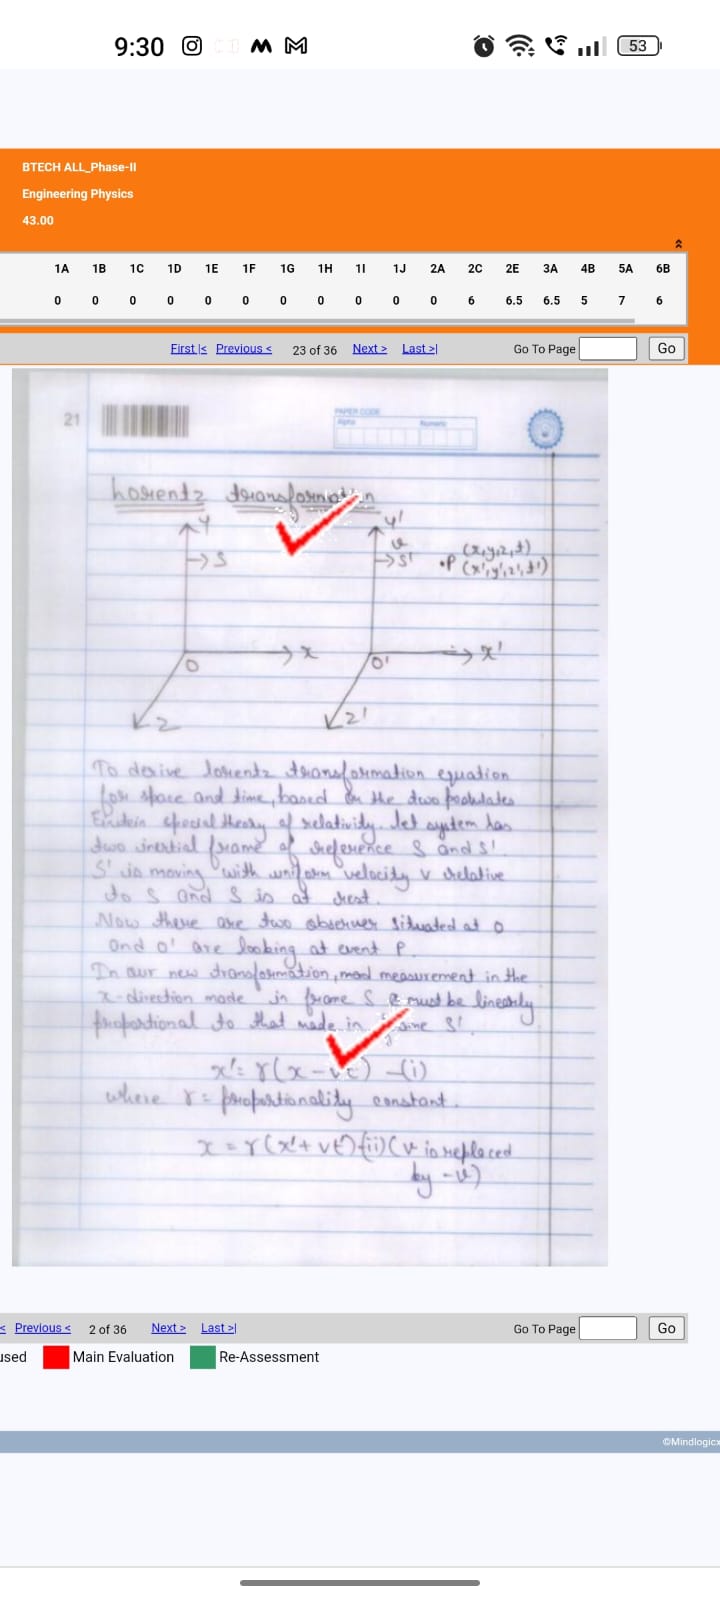 9:30
53
BTECH ALL_Phase-II
Engineering Physics
43.00
1A 1B 1C 1D 1E 1F 1G 1H 1I 1J 2A 2C 2E 3A 4B 5A 6B
0 0 0 0 0 0 0 0 0 0 0 6 6.5 6.5 5 7 6
First |< Previous < 23 of 36 Next > Last >| Go To Page Go
21
PAPER CODE
Alpha Numeric
Lorentz transformation
Y Y'
v
S S' •P (x,y,z,t)
(x',y',z',t')
O x O' x'
Z Z'
To derive lorentz transformation equation
for space and time, based on the two postulates
Einstein special theory of relativity. Let system has
two inertial frame of reference S and S'.
S' is moving with uniform velocity v relative
to S and S is at rest.
Now there are two observer situated at O
and O' are looking at event P.
In our new transformation, measurement in the
x-direction made in frame S must be linearly
proportional to that made in frame S'
x' = γ(x - vt) —(i)
where γ = proportionality constant.
x = γ(x' + vt') —(ii) (v is replaced
by -v)
< Previous < 2 of 36 Next > Last >| Go To Page Go
used Main Evaluation Re-Assessment
©Mindlogicx